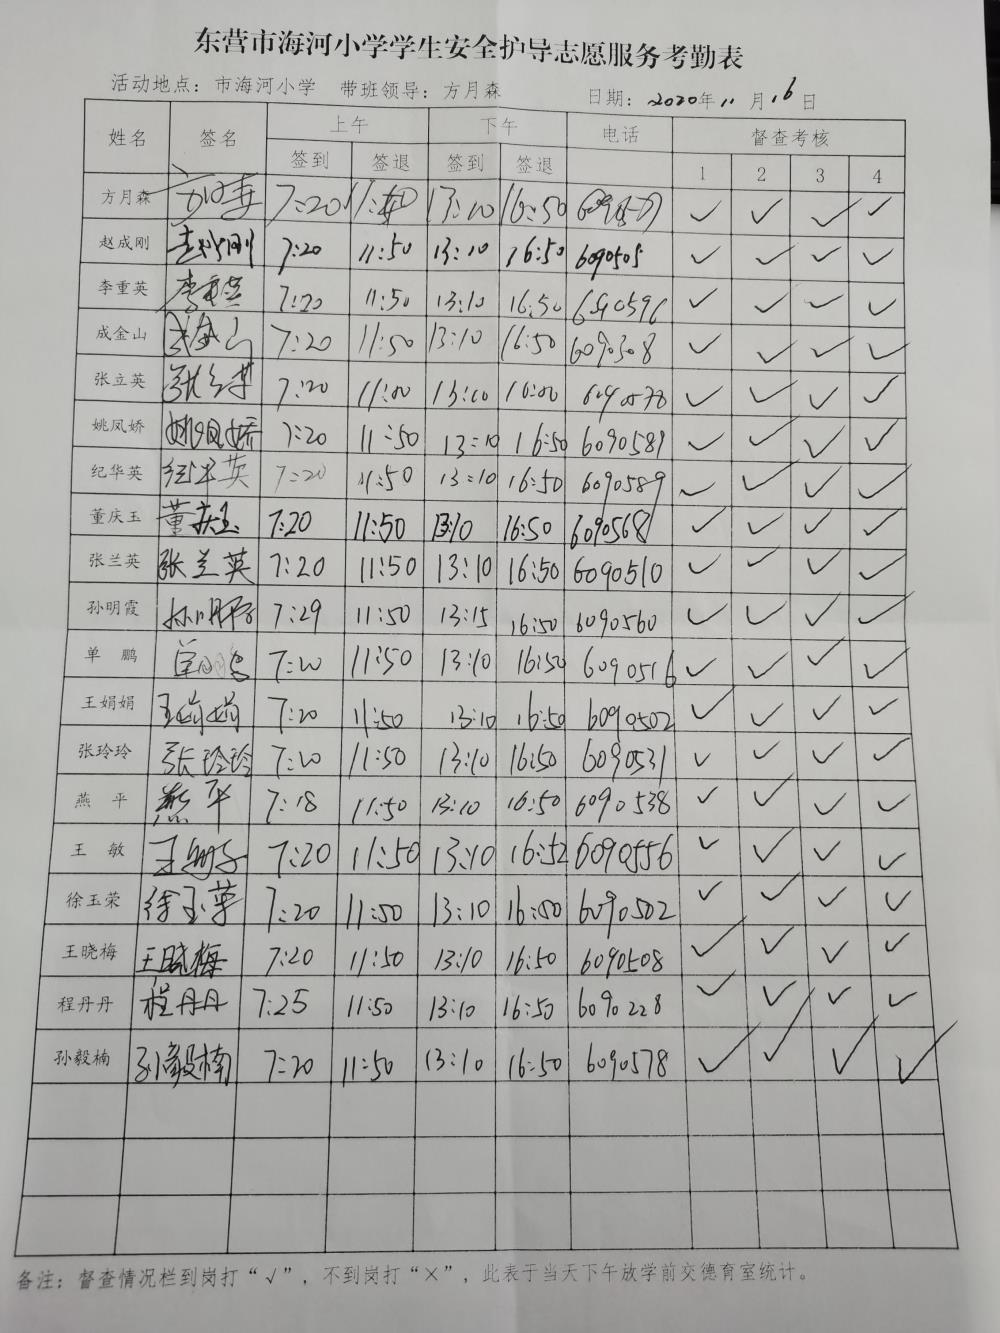 东营市海河小学学生安全护导志愿服务考勤表
活动地点：市海河小学 带班领导：方月森 日期：2020年11月16日
姓名 签名 上午 下午 电话 督查考核
签到 签退 签到 签退 1 2 3 4
方月森 7:20 13:10 16:50 ✓ ✓ ✓ ✓
赵成刚 赵成刚 7:20 11:50 13:10 16:50 6090505 ✓ ✓ ✓ ✓
李重英 李重英 7:20 11:50 13:10 16:50 6090596 ✓ ✓ ✓ ✓
成金山 成金山 7:20 11:50 13:10 16:50 6090308 ✓ ✓ ✓ ✓
张立英 张立英 7:20 13:10 ✓ ✓ ✓ ✓
姚凤娇 姚凤娇 7:20 11:50 13:10 16:50 6090589 ✓ ✓ ✓ ✓
纪华英 纪华英 7:20 11:50 13:10 16:50 6090589 ✓ ✓ ✓ ✓
董庆玉 董庆玉 7:20 11:50 13:10 16:50 6090568 ✓ ✓ ✓ ✓
张兰英 张兰英 7:20 11:50 13:10 16:50 6090510 ✓ ✓ ✓ ✓
孙明霞 孙明霞 7:29 11:50 13:15 16:50 6090560 ✓ ✓ ✓ ✓
单鹏 单鹏 7:20 11:50 13:10 16:50 6090516 ✓ ✓ ✓ ✓
王娟娟 王娟娟 7:20 11:50 13:10 16:50 6090502 ✓ ✓ ✓ ✓
张玲玲 张玲玲 7:20 11:50 13:10 16:50 6090531 ✓ ✓ ✓ ✓
燕平 燕平 7:18 11:50 13:10 16:50 6090538 ✓ ✓ ✓ ✓
王敏 王敏 7:20 11:50 13:10 16:52 6090556 ✓ ✓ ✓ ✓
徐玉荣 徐玉荣 7:20 11:50 13:10 16:50 6090502 ✓ ✓ ✓ ✓
王晓梅 王晓梅 7:20 11:50 13:10 16:50 6090508 ✓ ✓ ✓ ✓
程丹丹 程丹丹 7:25 11:50 13:10 16:50 6090228 ✓ ✓ ✓ ✓
孙毅楠 孙毅楠 7:20 11:50 13:10 16:50 6090578 ✓ ✓ ✓ ✓
备注：督查情况栏到岗打“√”，不到岗打“×”，此表于当天下午放学前交德育室统计。